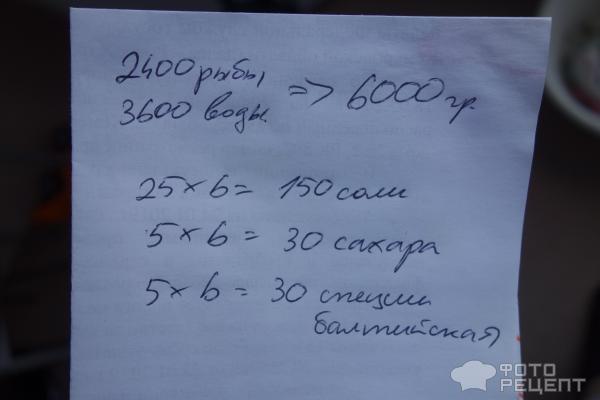 2400 рыбы,
3600 воды. => 6000 гр.
25 × 6 = 150 соли
5 × 6 = 30 сахара
5 × 6 = 30 специи
балтийская
ФОТО
РЕЦЕПТ